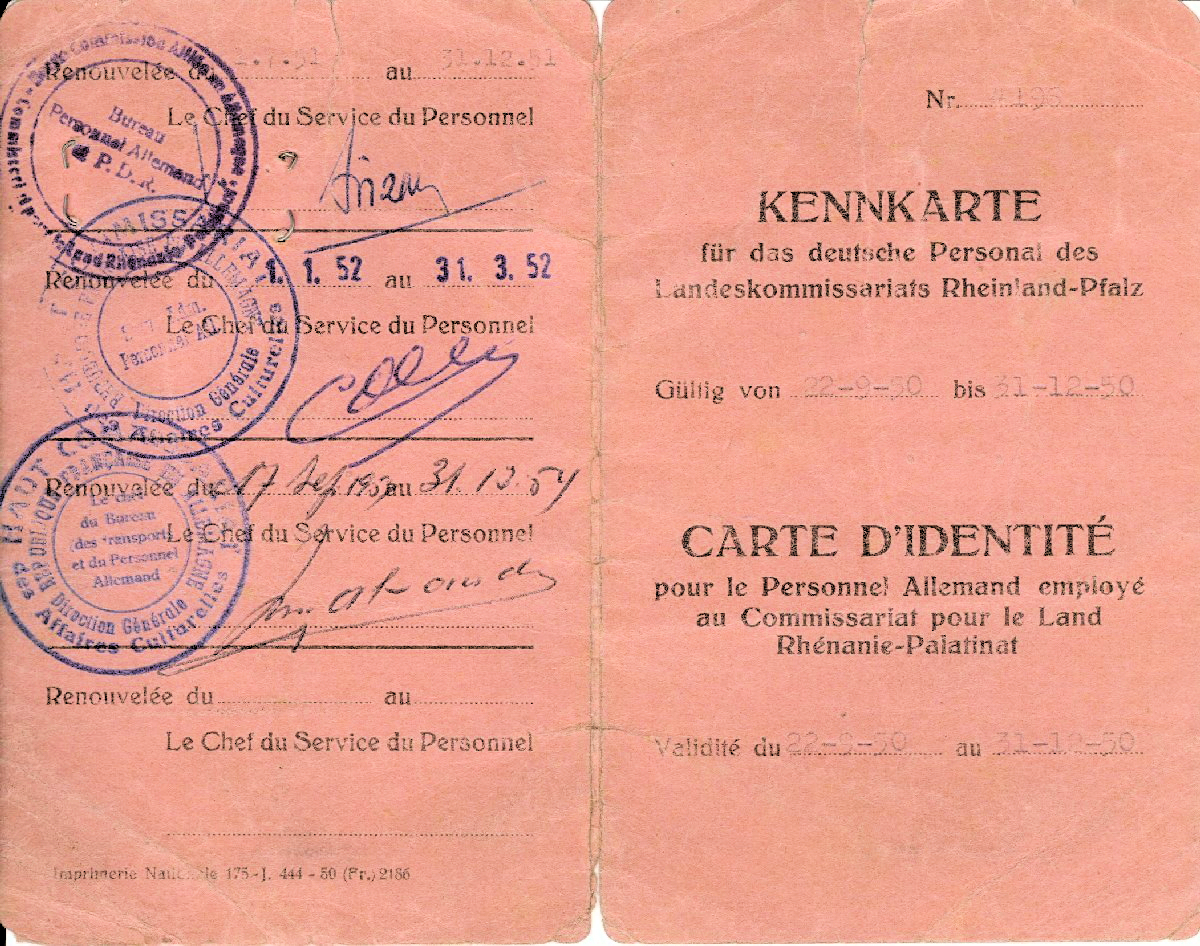 Renouvelée du 1.7.51 au 31.12.51
Le Chef du Service du Personnel
Bureau
Personnel Allemand
P.D.R.
Renouvelée du 1. 1. 52 au 31. 3. 52
Le Chef du Service du Personnel
Direction Générale
Affaires Culturelles
Renouvelée du 17 au 31.12.54
Le Chef du Service du Personnel
HAUT
RÉPUBLIQUE FRANÇAISE EN ALLEMAGNE
Direction Générale
des Affaires Culturelles
Le chef
du Bureau
des transports
et du Personnel
Allemand
Renouvelée du au
Le Chef du Service du Personnel
Imprimerie Nationale 175-J. 444 - 50 (Fr.) 2186
Nr.
KENNKARTE
für das deutsche Personal des
Landeskommissariats Rheinland-Pfalz
Gültig von 22-9-50 bis 31-12-50
CARTE D'IDENTITÉ
pour le Personnel Allemand employé
au Commissariat pour le Land
Rhénanie-Palatinat
Validité du 22-9-50 au 31-12-50